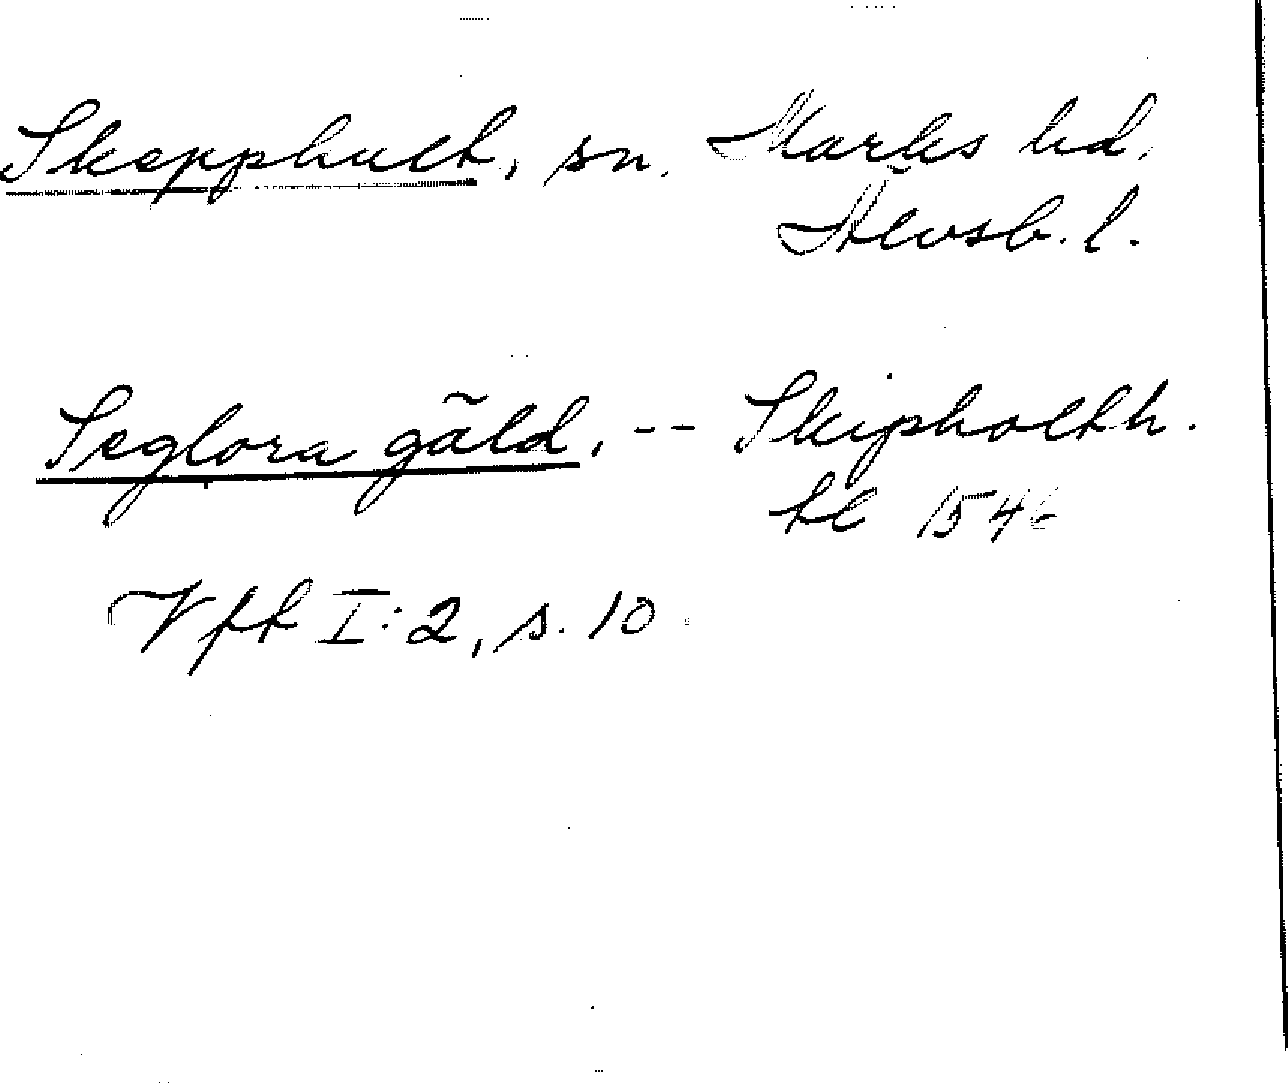 Skepphult, sn. Marks hd.
Älvsb. l.
Seglora gäld, -- Skipholth.
tl 1546
Vff I:2, s. 10